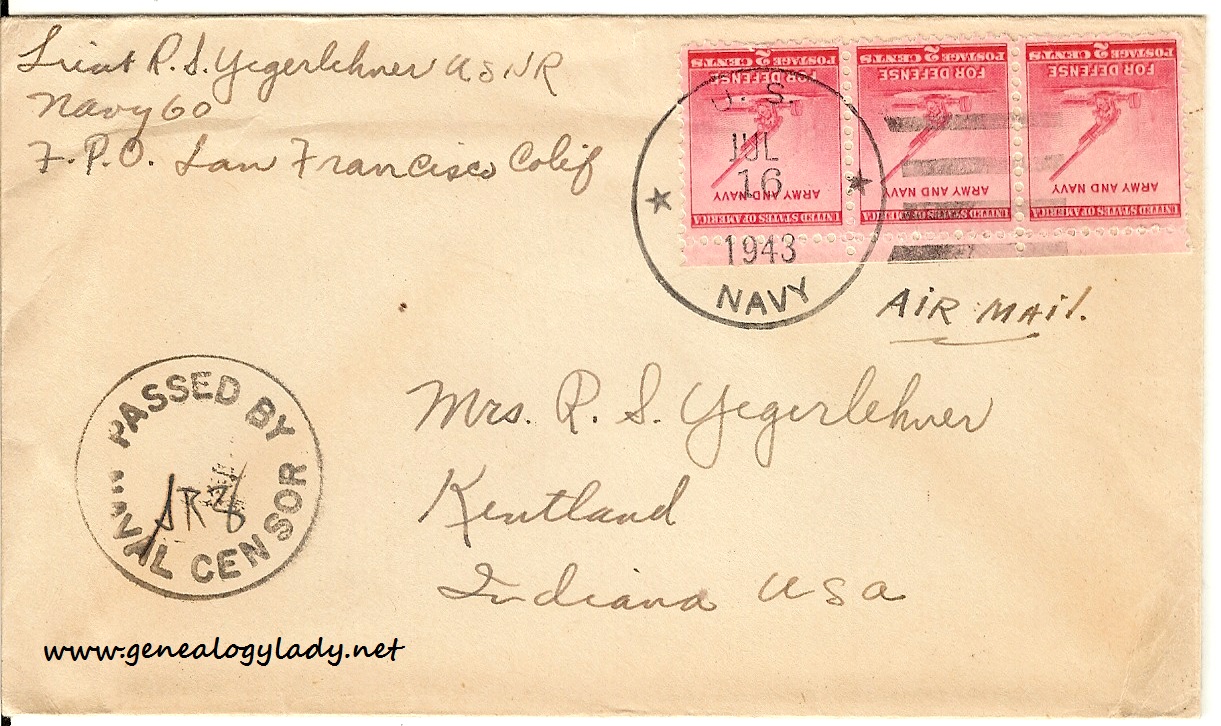 Lieut R. S. Yegerlehner USNR
Navy 60
F. P. O. San Francisco Calif
POSTAGE 2 CENTS POSTAGE 2 CENTS POSTAGE 2 CENTS
FOR DEFENSE FOR DEFENSE FOR DEFENSE
ARMY AND NAVY ARMY AND NAVY ARMY AND NAVY
UNITED STATES OF AMERICA UNITED STATES OF AMERICA UNITED STATES OF AMERICA
U. S.
JUL
16
1943
NAVY
AIR MAIL.
Mrs. R. S. Yegerlehner
Kentland
Indiana USA
PASSED BY
NAVAL CENSOR
www.genealogylady.net